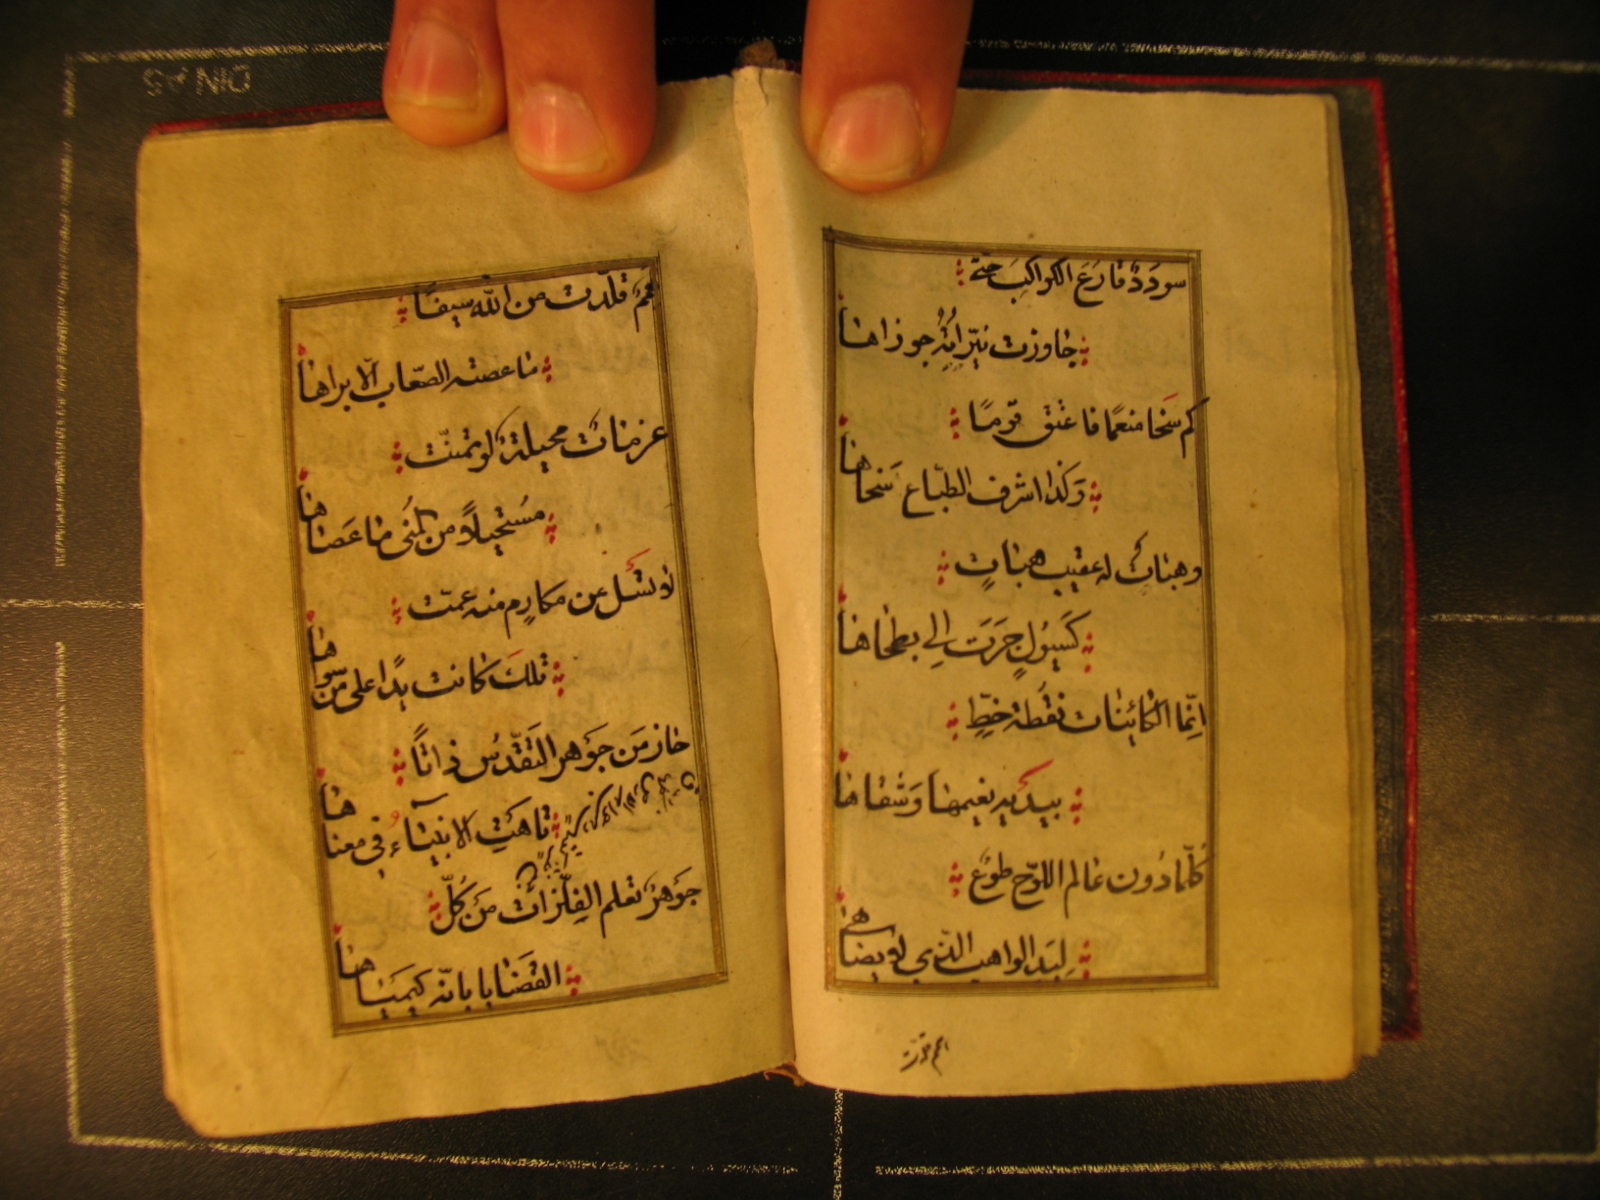 سودد قارع الكواكب حتى
جاوزت نيراته جوزاها
كم سخا منعما فاعتق قوما
وكذا اشرف الطباع سخاها
وهبات له عقيب هبات
كسيول جرت الى بطحاها
انما الكائنات نقطة خط
بيديه نعيمها وشقاها
كلما دون عالم اللوح طوع
ليد الواهب الذي لو يضاهى
هم قلدت من الله سيفا
ما عصته الصعاب الا براها
عزمات محيلة لو تمنت
مستحيلا من المنى ما عصاها
لا تسل عن مكارم منه عمت
تلك كانت يدا على من سواها
حاز من جوهر التقدس ذاتا
تاهت الانبياء في معناها
جوهر تعلم الفلزات من كل
القضايا بانه كيمياها
DIN A5